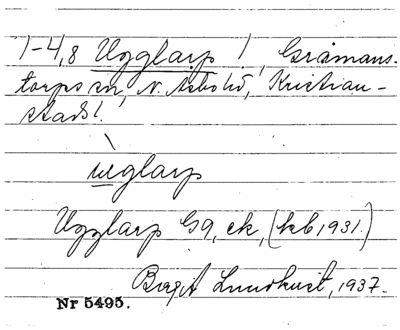 1-4,8 Ugglarp !, Gråmans-
torps sn, N. Åsbo hd, Kristian-
stads l.
ùglarp
Ugglarp Gg, ek, (kb 1931.)
Birgit Lundkvist, 1937.
Nr 5495.